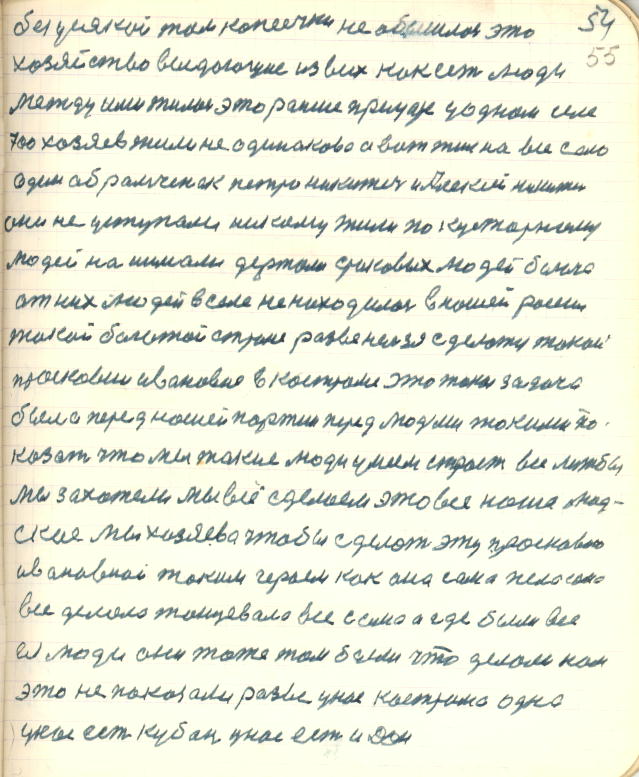 54
55
без всякой там копеечки не обошлось это
хозяйство выдающие из всех как сеть люди
между ими жили это раньше прежде у одном селе
700 хозяев жили не одинаково а вот жил на все село
один абрамченак петро никитич и Алексей никитич
они не уступали никому жили по кустарному
людей на нимали держали сроковых людей больше
от них людей в селе не находилось в нашей росеи
такой болотой стране разве нельзя сделать такой
просковии ивановне в костроме это така задача
была перед нашей партии перед людми такими по-
казат что мы такие люди умеем строит все лишь бы
мы захотели мы всё сделаем это все наша люд-
ские мы хозяева чтобы сделат эту просковю
ивановной таким героем как она сама пела сама
все делала танцевала все сама а где были все
ей люди они тоже там были что делали нам
это не показали разве унас кострома одна
унас ест кубан унас ест и Дон